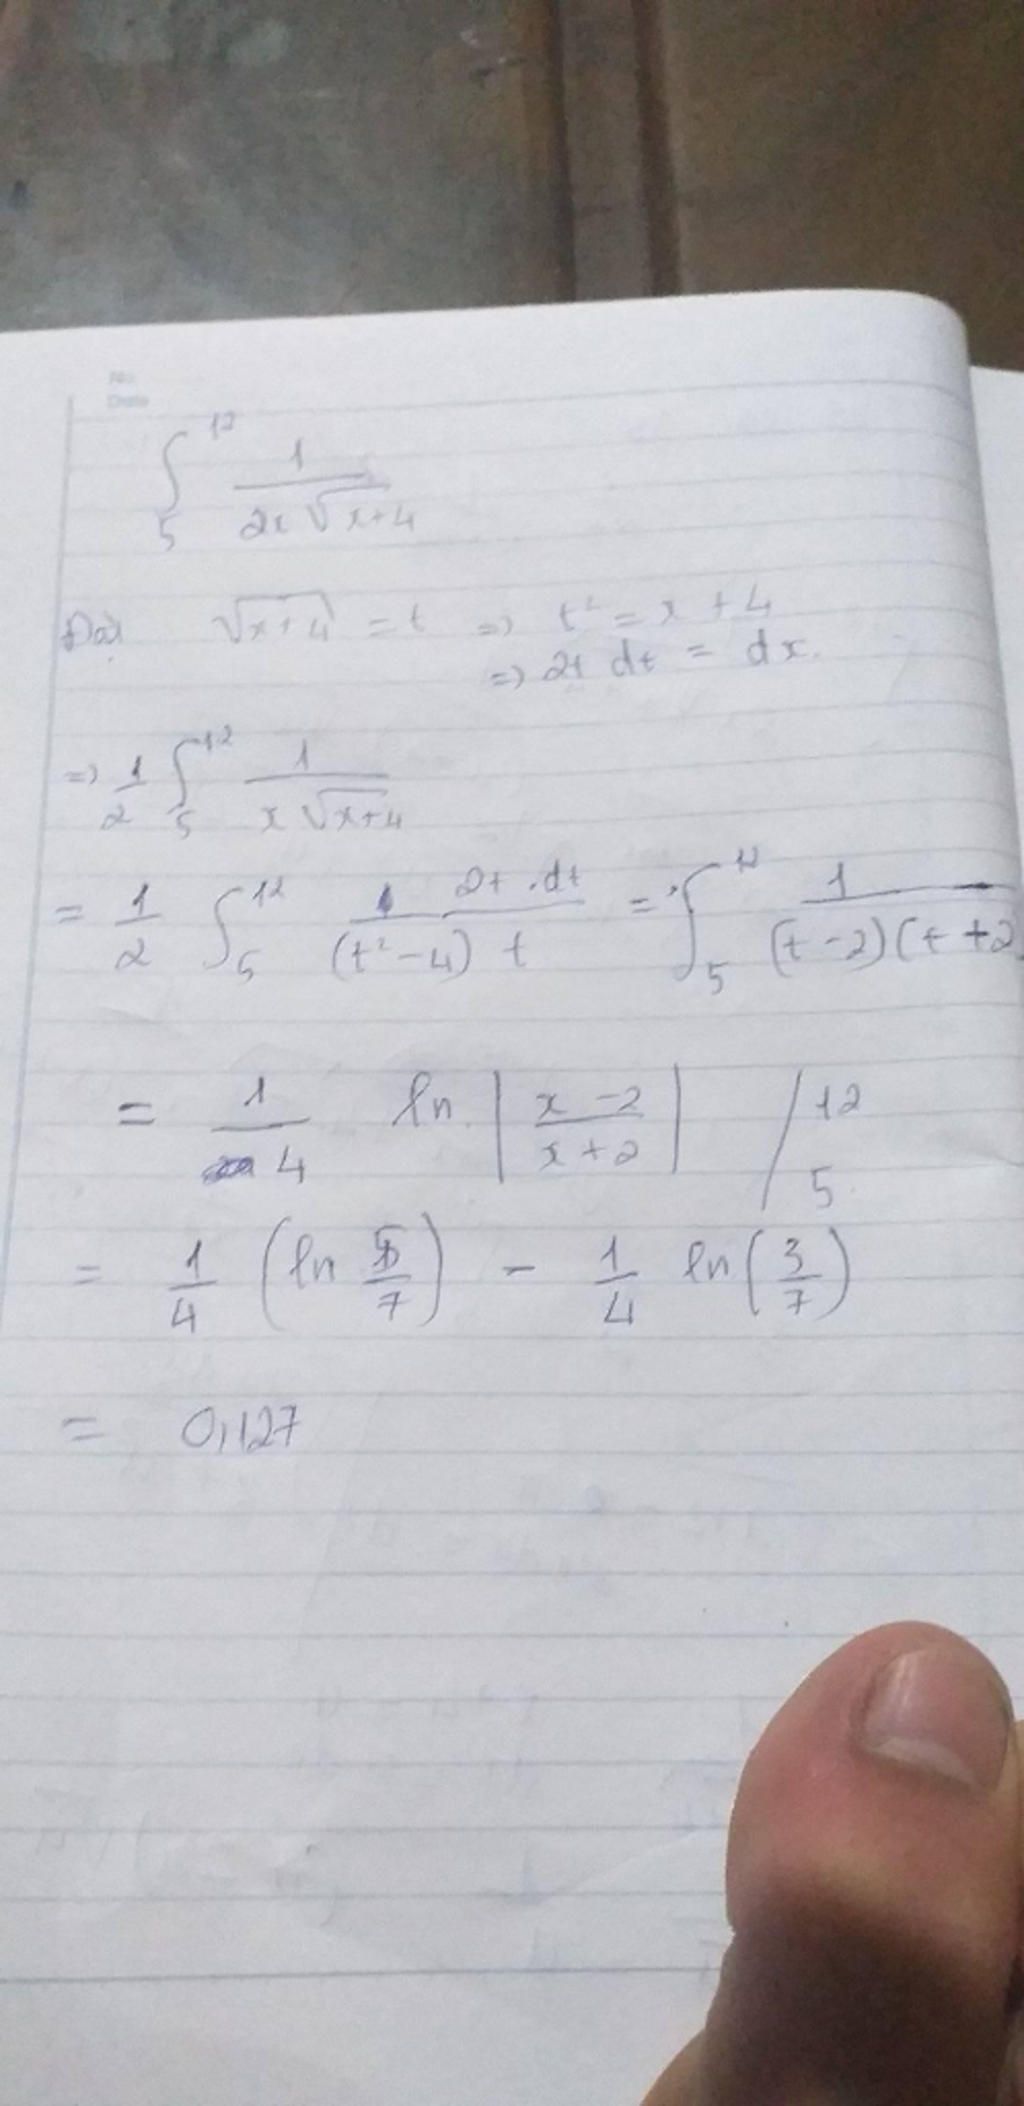 No.
Date
∫₅¹² 1/(2x√(x+4))
Đặt √(x+4) = t => t² = x + 4
=> 2t dt = dx.
=> 1/2 ∫₅¹² 1/(x√(x+4))
= 1/2 ∫₅¹² 1/(t²-4) 2t.dt/t = ∫₅¹² 1/((t-2)(t+2)
= 1/4 ln |(x-2)/(x+2)| |₅¹²
= 1/4 (ln 5/7) - 1/4 ln(3/7)
= 0,127